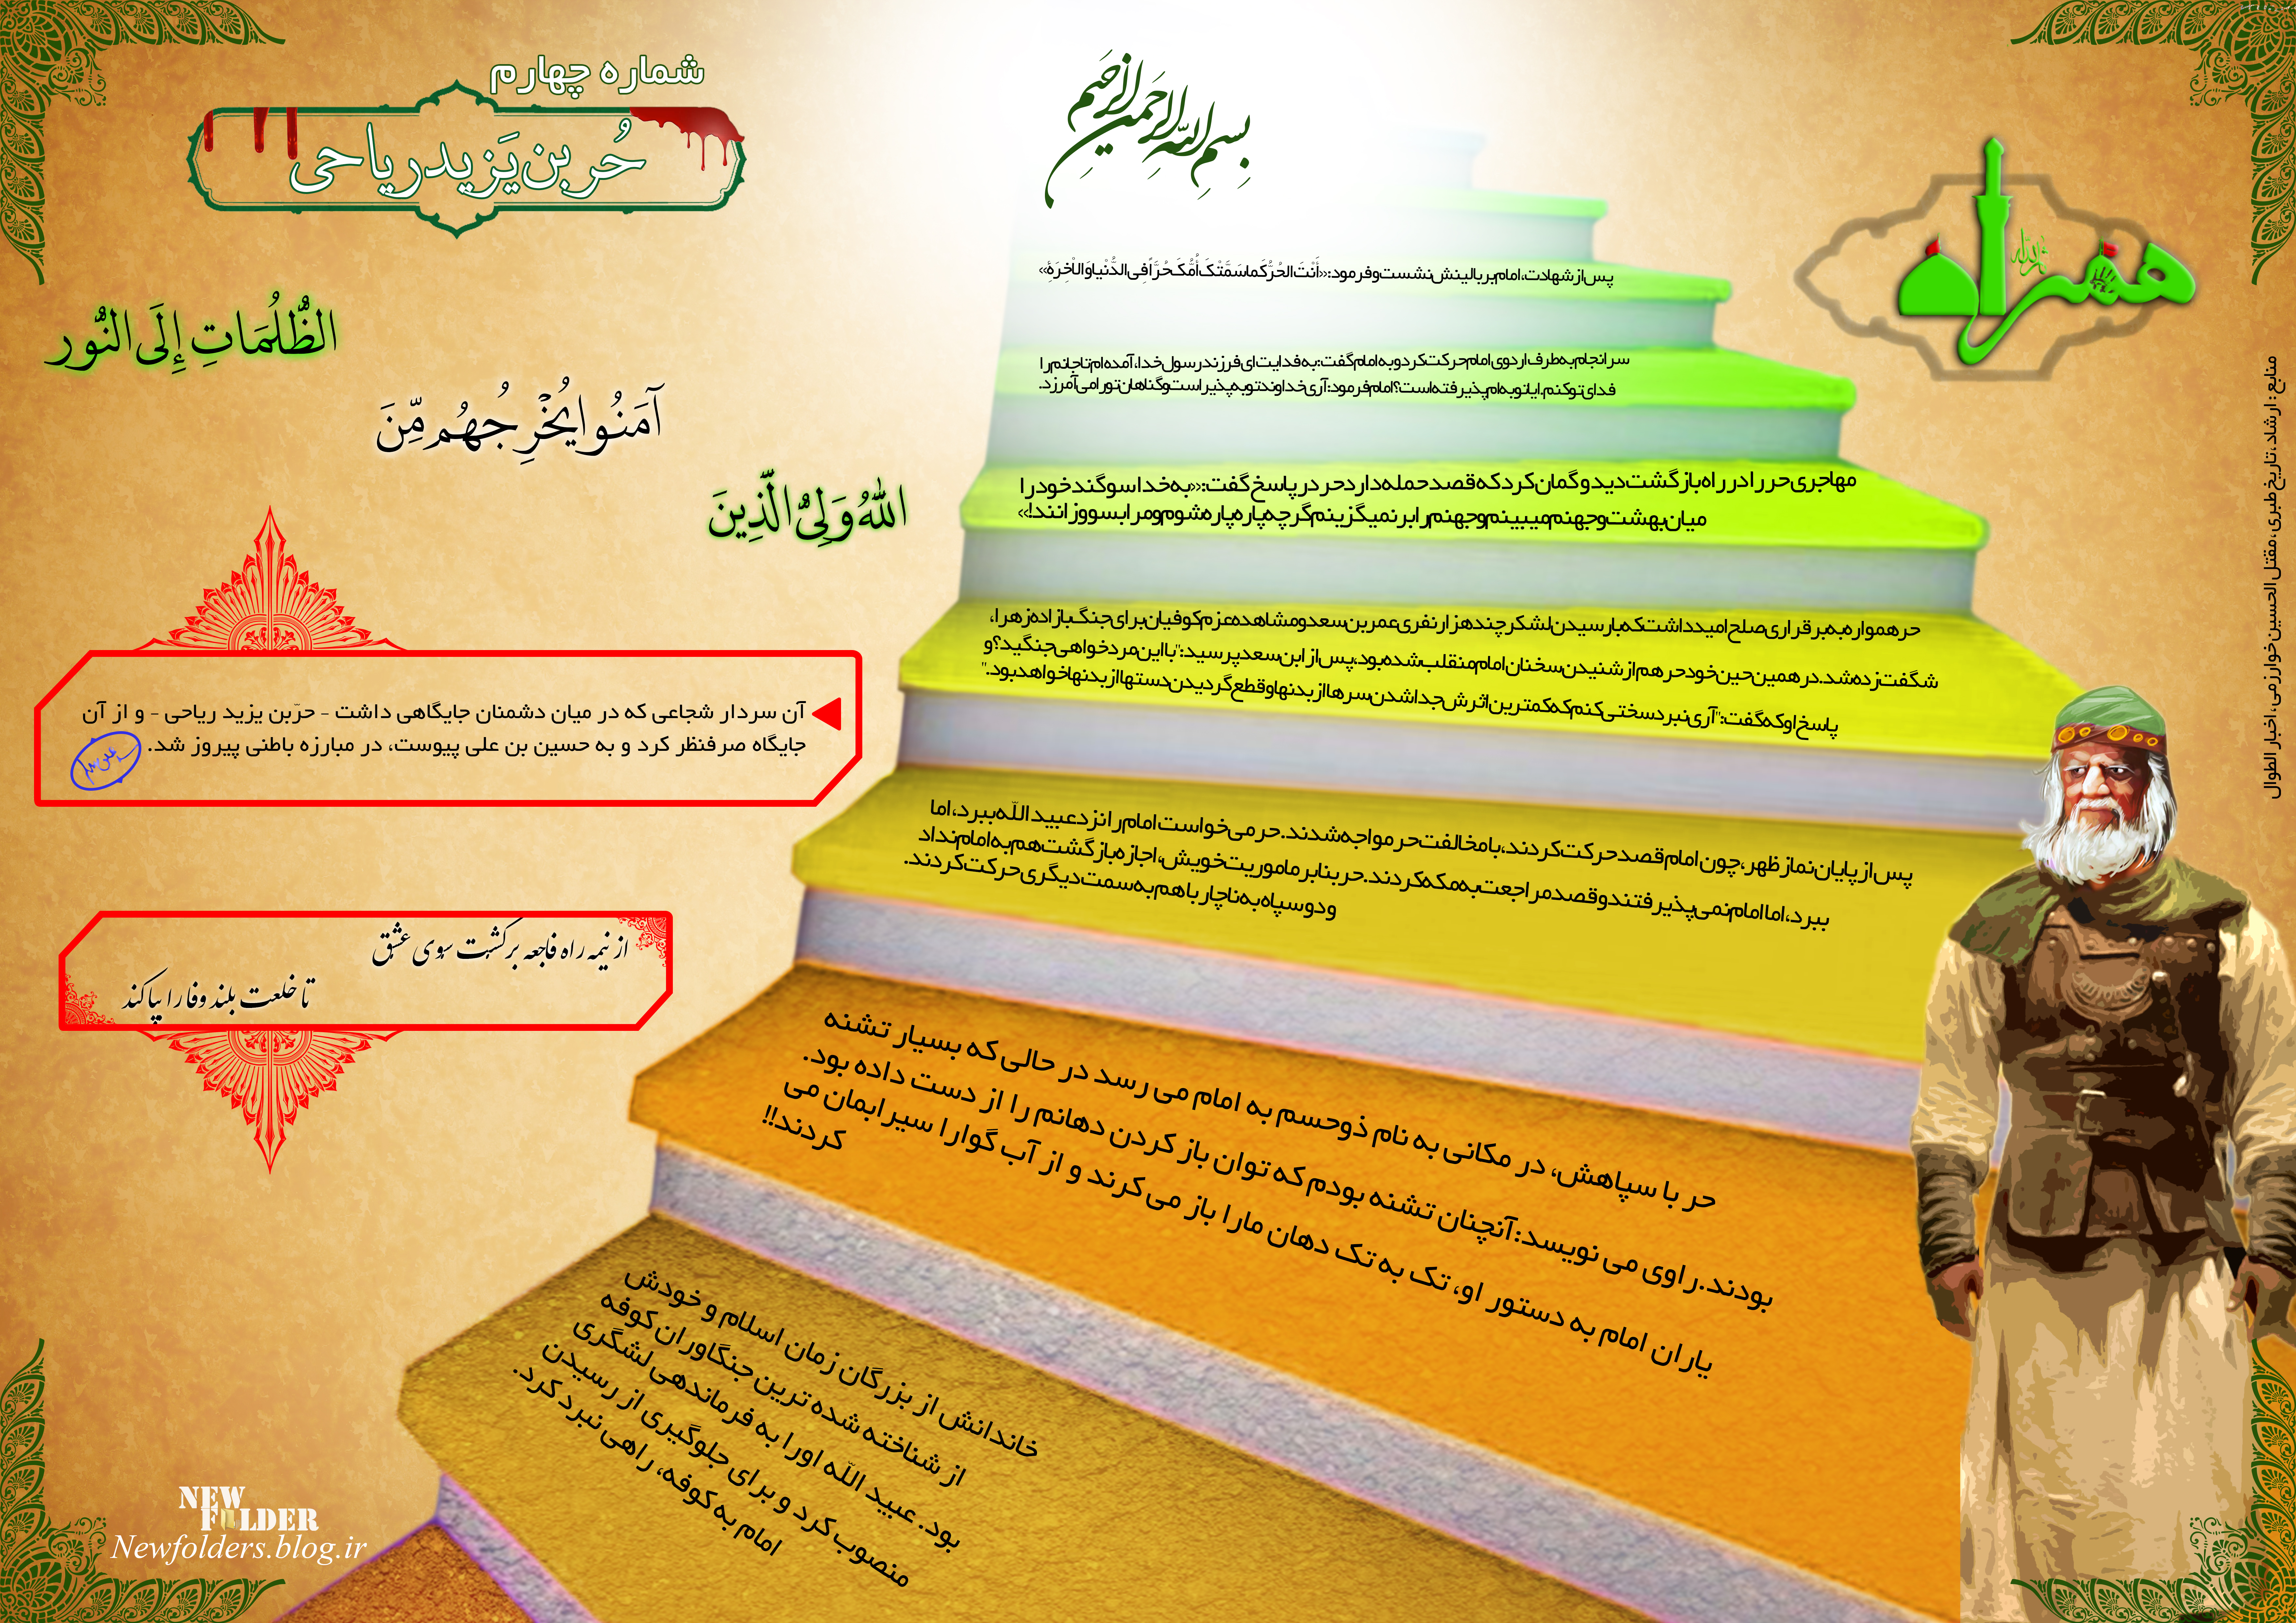 بِسمِ اللهِ الرَّحمنِ الرَّحیمِ
شماره چهارم
حُر بن یَزید ریاحی
همراه
اللهُ وَلِیُّ الَّذِینَ
آمَنُوا یُخْرِجُهُم مِّنَ
الظُّلُمَاتِ إِلَی النُّور
پس از شهادت، امام بر بالینش نشست و فرمود: «أَنْتَ الحُرُّ کَما سَمَّتْکَ أُمُّکَ حُرّاً فِی الدُّنْیا وَ الْآخِرَةِ»
سرانجام به طرف اردوی امام حرکت کرد و به امام گفت: به فدایت ای فرزند رسول خدا، آمده ام تا جانم را
فدای تو کنم. ایا توبه ام پذیرفته است؟ امام فرمود: آری خداوند توبه پذیر است و گناهان تو را می آمرزد.
مهاجری حر را در راه بازگشت دید و گمان کرد که قصد حمله دارد حر در پاسخ گفت: «به خدا سوگند خود را
میان بهشت و جهنم میبینم و جهنم را بر نمیگزینم گرچه پاره پاره شوم و مرا بسووزانند!»
حر همواره به برقراری صلح امید داشت که با رسیدن لشکر چند هزار نفری عمر بن سعد و مشاهده عزم کوفیان برای جنگ با زاده زهرا،
شگفت زده شد. در همین حین خود حر هم از شنیدن سخنان امام منقلب شده بود، پس از ابن سعد پرسید: "با این مرد خواهی جنگید؟ و
پاسخ او که گفت: "آری نبرد سختی کنم که کمترین اثرش جدا شدن سرها از بدنها و قطع گردیدن دستها از بدنها خواهد بود."
پس از پایان نماز ظهر، چون امام قصد حرکت کردند، با مخالفت حر مواجه شدند. حر می خواست امام را نزد عبید اللّه ببرد، اما
ببرد، اما امام نمی پذیرفتند و قصد مراجعت به مکه کردند. حر بنا بر ماموریت خویش، اجازه بازگشت هم به امام نداد
و دو سپاه به ناچار با هم به سمت دیگری حرکت کردند.
حر با سپاهش، در مکانی به نام ذوحسم به امام می رسد در حالی که بسیار تشنه
بودند. راوی می نویسد: آنچنان تشنه بودم که توان باز کردن دهانم را از دست داده بود.
یاران امام به دستور او، تک به تک دهان مارا باز می کرند و از آب گوارا سیرابمان می
کردند!!
خاندانش از بزرگان زمان اسلام و خودش
از شناخته شده ترین جنگاوران کوفه
بود. عبید اللّه اورا به فرماندهی لشگری
منصوب کرد و برای جلوگیری از رسیدن
امام به کوفه، راهی نبرد کرد.
آن سردار شجاعی که در میان دشمنان جایگاهی داشت - حرّبن یزید ریاحی - و از آن
جایگاه صرفنظر کرد و به حسین بن علی پیوست، در مبارزه باطنی پیروز شد.
از نیمه راه فاجعه برگشت سوی عشق
تا خلعت بلند وفا را بپا کند
منابع : ارشاد ،تاریخ طبری، مقتل الحسین خوارزمی، اخبار الطوال
NEW
FOLDER
Newfolders.blog.ir